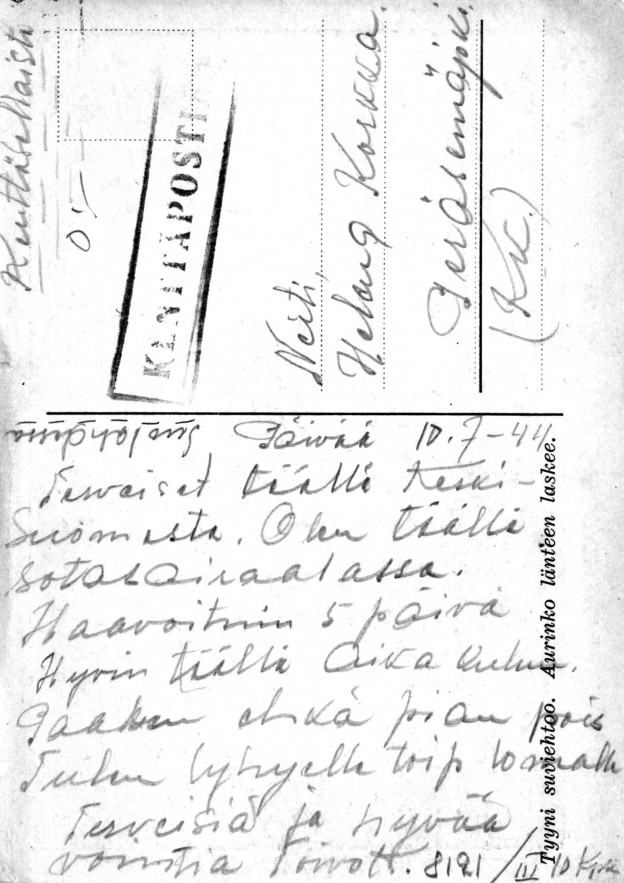 Kenttäpostia
0:-
KENTTÄPOSTIA
Neiti,
Helena Korkka.
Peräseinäjoki.
(KK.)
Päivää 10.7-44
Terveiset täältä Keski-
Suomesta. Olen täällä
sotasairaalassa.
Haavoituin 5 päivä
Hyvin täällä aika kuluu.
Pääsen ehkä pian pois
Tulen lyhyelle toip lomalle
Terveisiä ja hyvää
vointia Toivott. 8121/III
Tyyni suviehtoo. Aurinko länteen laskee.